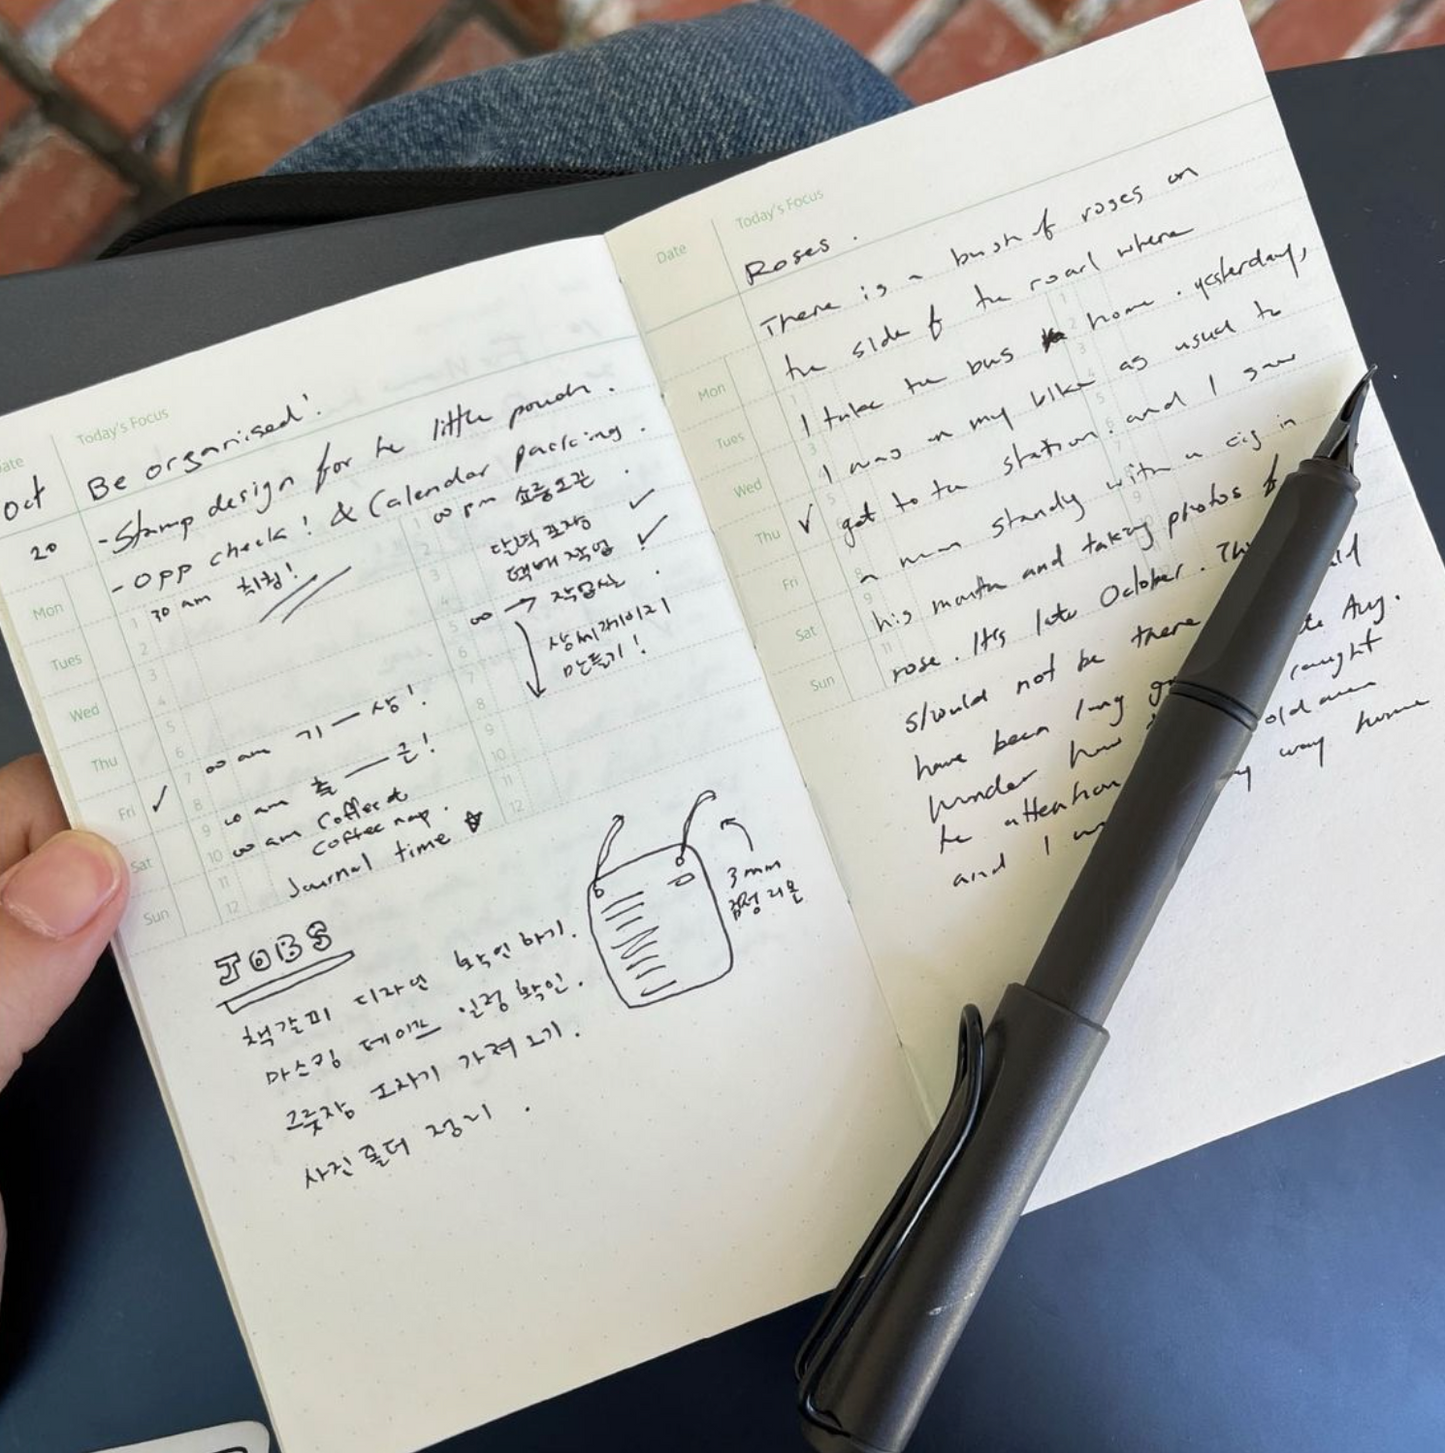 Date
Today's Focus
Oct
20
Be organised!
- Stamp design for the little pouch.
- OPP check! & Calendar packing.
30 am 취침!
Mon
Tues
Wed
Thu
Fri ✓
Sat
Sun
1
2
3
4
5
6
7
8
9
10
11
12
00 am 기 — 상!
00 am 출 — 근!
00 am Coffee &
coffee nap.
Journal time
1
2
3
4
5
6
7
8
9
10
11
12
00 pm 쇼룸오픈.
단턱 포장 ✓
택배 작업 ✓
00 → 작업실.
상세페이지
만들기!
JOBS
책갈피 디자인 확인하기.
마스킹 테이프 일정 확인.
그릇장 가져오기.
사진 폴더 정리.
3mm
검정 리본
Date
Today's Focus
Roses.
There is a bush of roses on
the side of the road where
I take the bus home. yesterday,
I was on my bike as usual to
get to the station. and I saw
a man standy with a cig in
his mouth and taking photos of
rose. It's late October. This
should not be there
Aug.
have been long
caught
wonder how
old man
he attention
way home
and I
Mon
Tues
Wed
Thu ✓
Fri
Sat
Sun